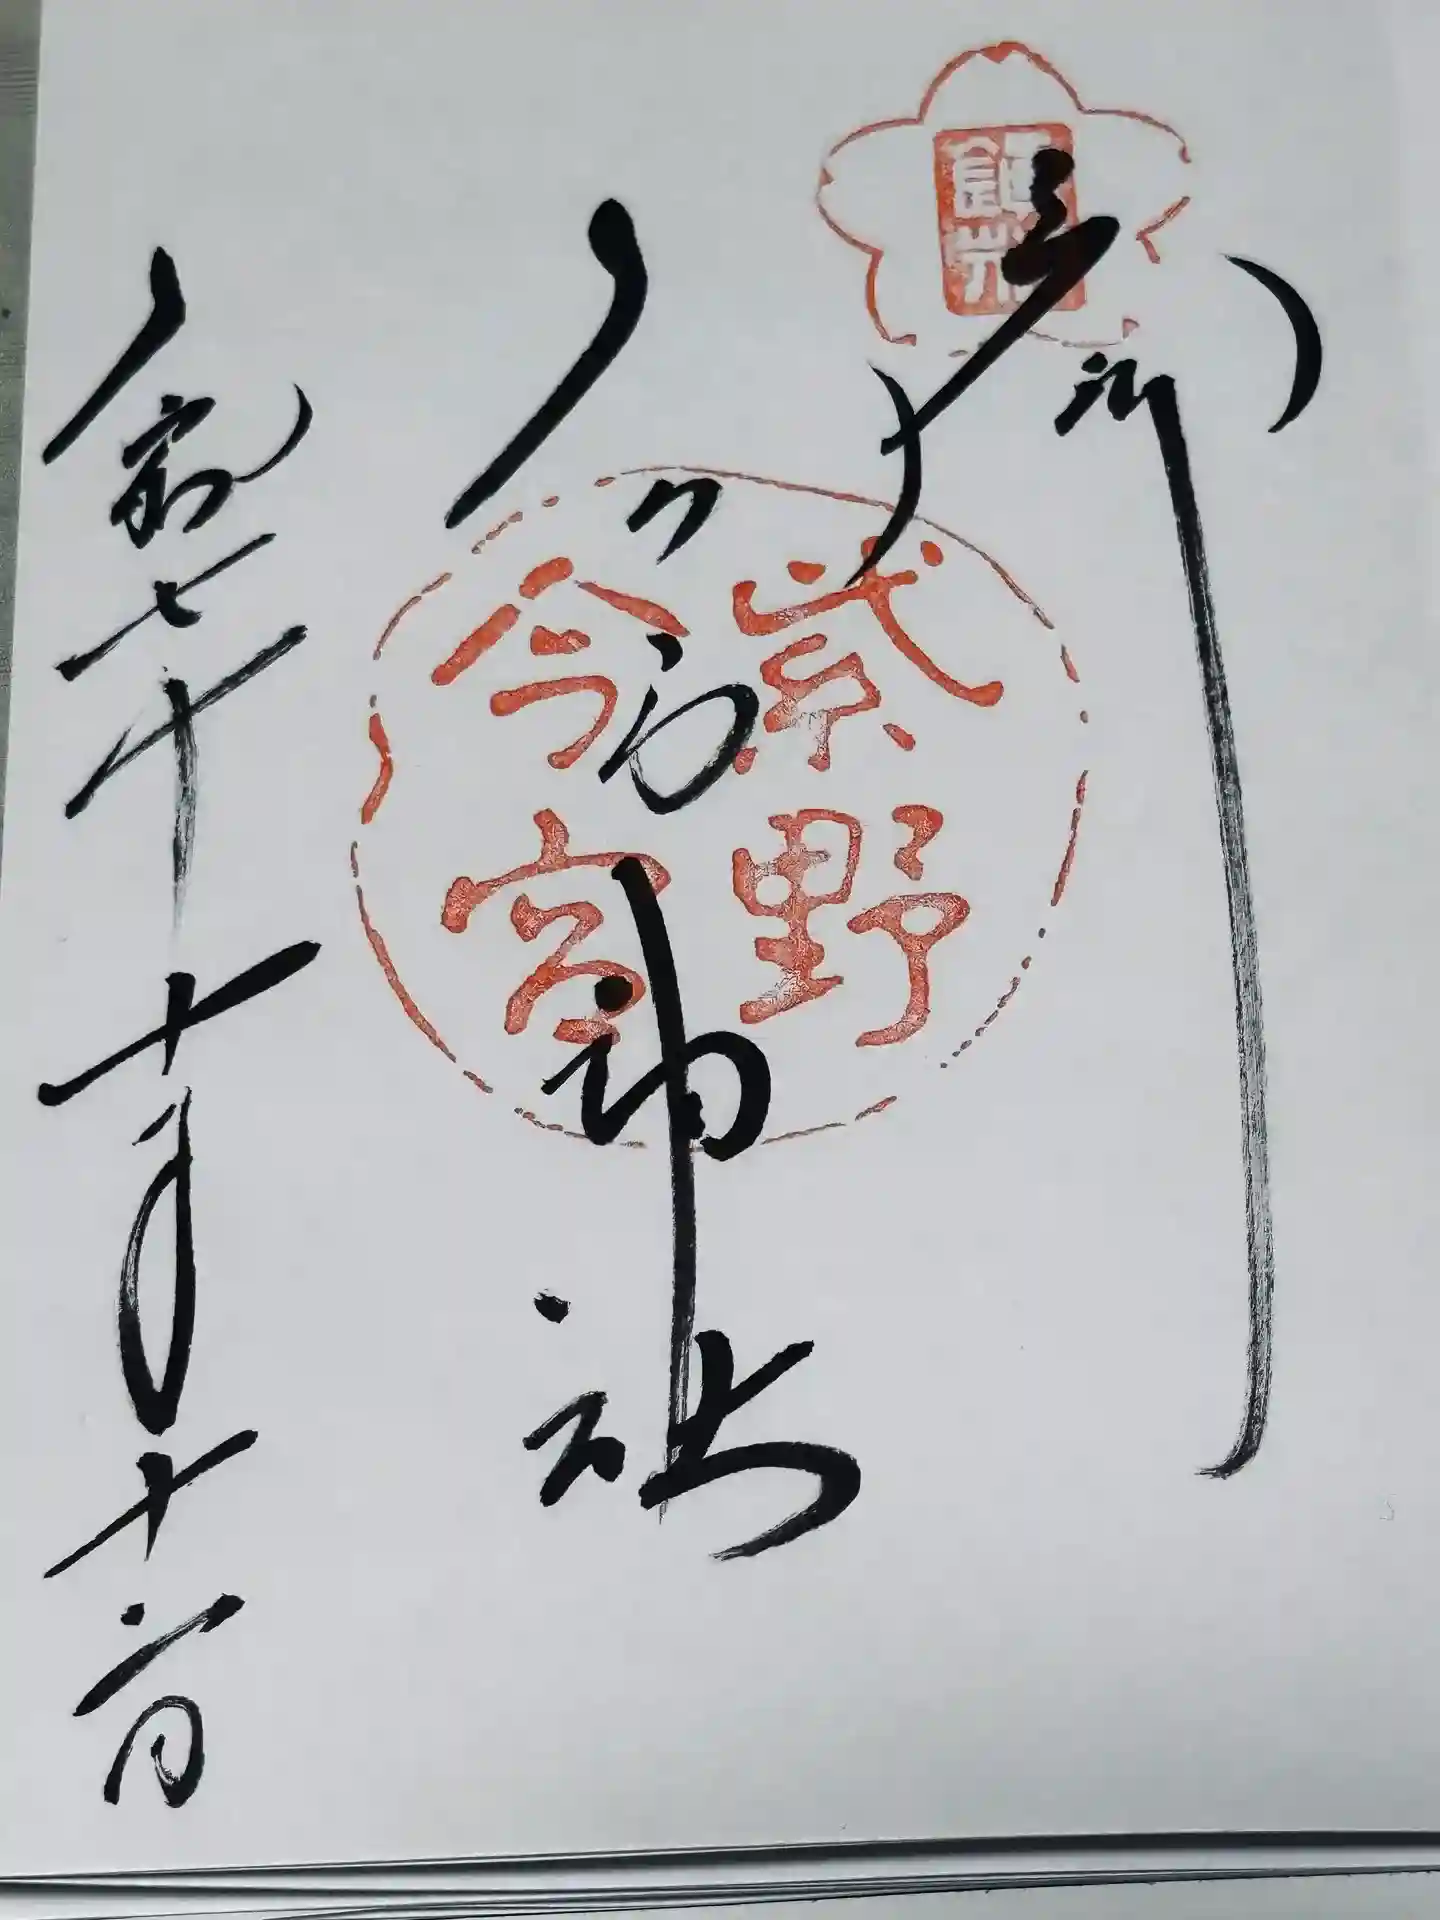 奉拝
紫野
今宮
今宮神社
令和七年十月十六日